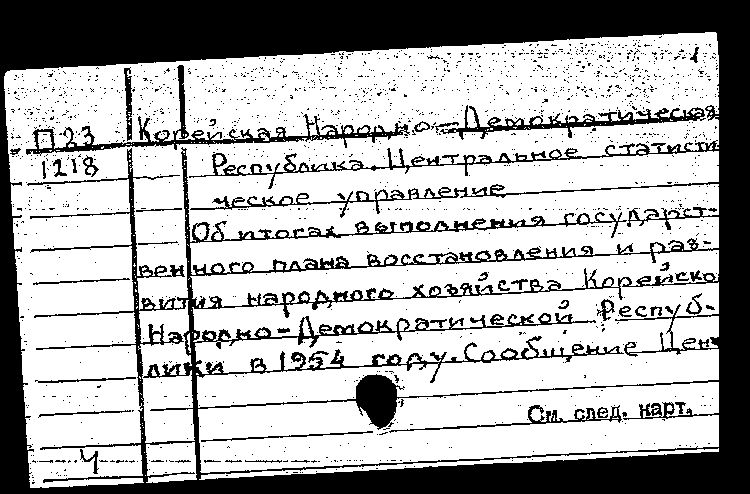 1
П23 Корейская Народно-Демократическая
1218 Республика. Центральное статисти
ческое управление
Об итогах выполнения государст-
венного плана восстановления и раз-
вития народного хозяйства Корейско
Народно-Демократической Респуб-
лики в 1954 году. Сообщение Цен
См. след. карт.
Ч